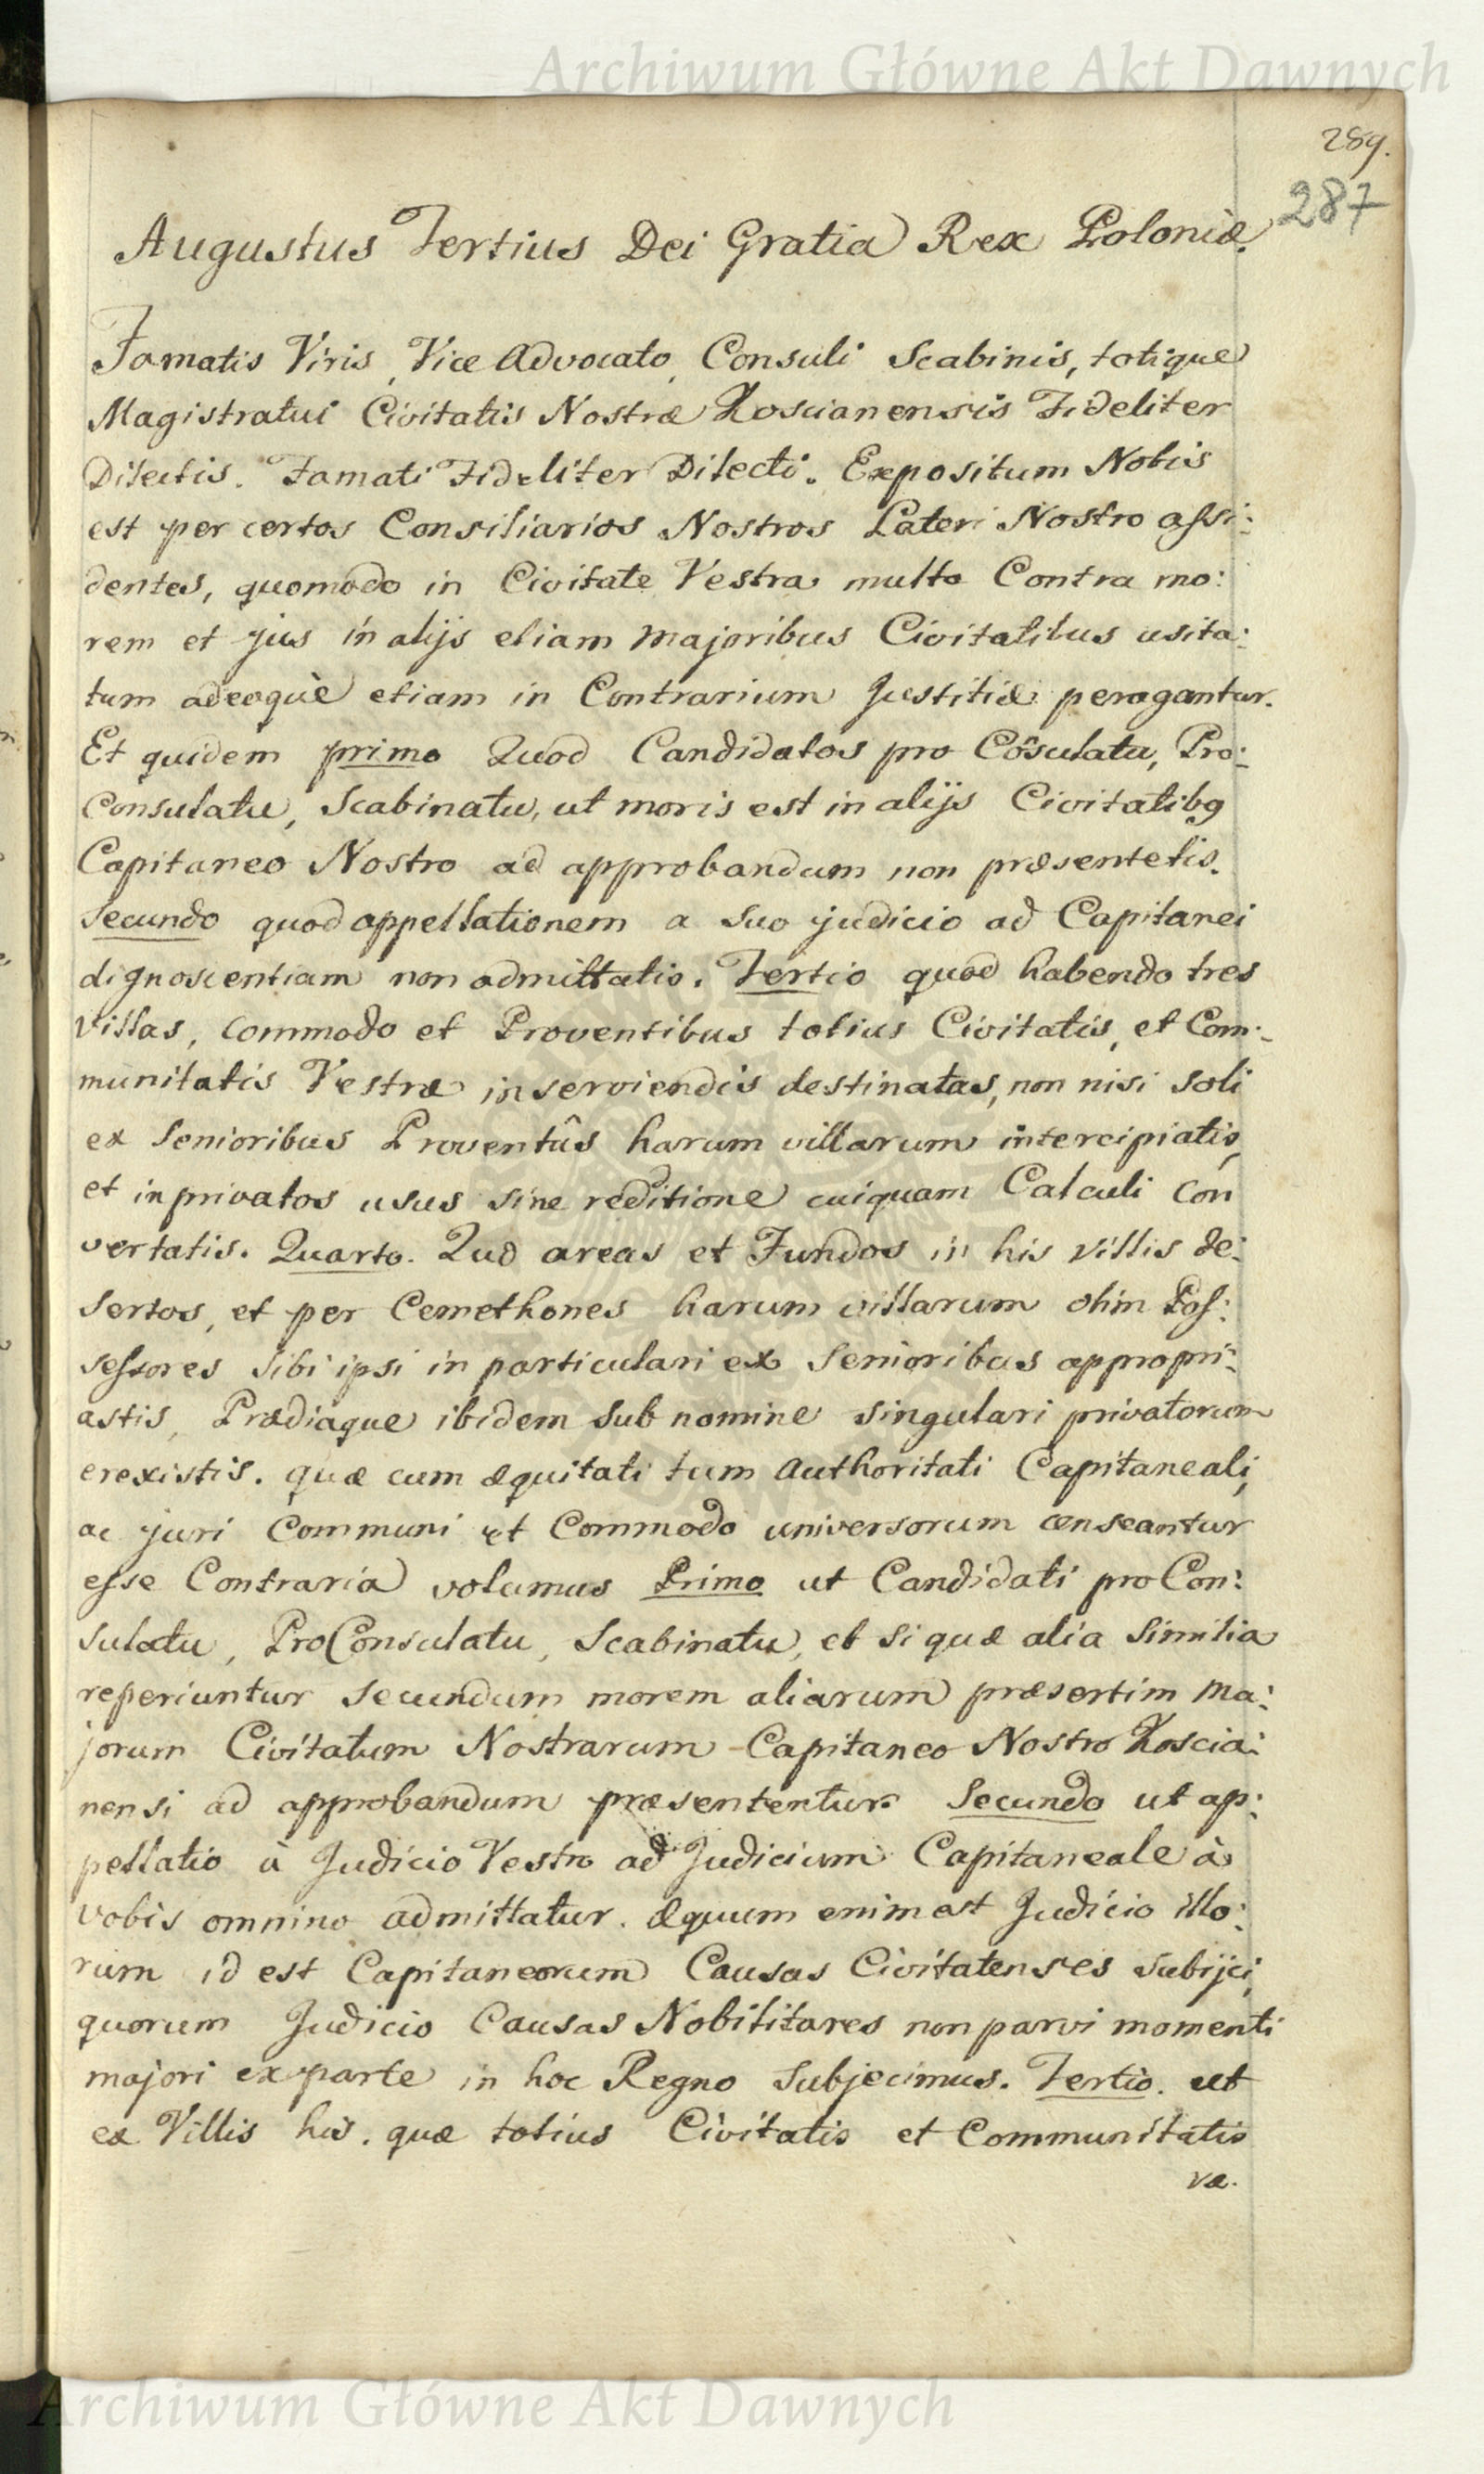 Archiwum Główne Akt Dawnych
289.
287
Augustus Tertius Dei Gratia Rex Poloniæ.
Famatis Viris, Vice Advocato, Consuli Scabinis, totique
Magistratui Civitatis Nostræ Koscianensis Fideliter
Dilectis. Famati Fideliter Dilecti. Expositum Nobis
est per certos Consiliarios Nostros Lateri Nostro assi:
dentes, quomodo in Civitate Vestra multa Contra mo:
rem et jus in alijs etiam majoribus Civitatibus usita:
tum adeoquè etiam in Contrarium Justitiæ peragantur.
Et quidem primo Quod Candidatos pro Cõsulatu, Pro:
Consulatu, Scabinatu, ut moris est in alijs Civitatibq
Capitaneo Nostro ad approbandum non præsentetis.
Secundo quod appellationem a suo judicio ad Capitanei
dignoscentiam non admittatis. Tertio quod habendo tres
Villas, Commodo et Proventibus totius Civitatis, et Com:
munitatis Vestræ inserviendis destinatas, non nisi soli
ex Senioribus Proventûs harum villarum intercipiatis,
et in privatos usus sine reditione cuiquam Calculi Con
vertatis. Quarto. Qud areas et Fundos in his villis de:
sertos, et per Cemethones harum villarum olim Pos:
sessores sibi ipsi in particulari ex Senioribus appropri:
astis, Prædiaque ibidem sub nomine singulari privatorum
erexistis. quæ cum æquitati tum Authoritati Capitaneali,
ac juri Communi et Commodo universorum censeantur
esse Contraria volumus Primo ut Candidati pro Con:
sulatu, ProConsulatu, Scabinatu, et si quæ alia Similia
reperiuntur secundum morem aliarum præsertim Ma:
jorum Civitatum Nostrarum Capitaneo Nostro Koscia:
nensi ad approbandum præsententur. Secundo ut ap:
pellatio à Judicio Vestro ad Judicium Capitaneale à
vobis omnino admittatur. Æquum enim est Judicio illo:
rum id est Capitaneorum Causas Civitatenses subijci,
quorum Judicio Causas Nobilitares non parvi momenti
majori ex parte in hoc Regno subjecimus. Tertio. ut
ex Villis his. quæ totius Civitatis et Communitatis
væ.
Archiwum Główne Akt Dawnych